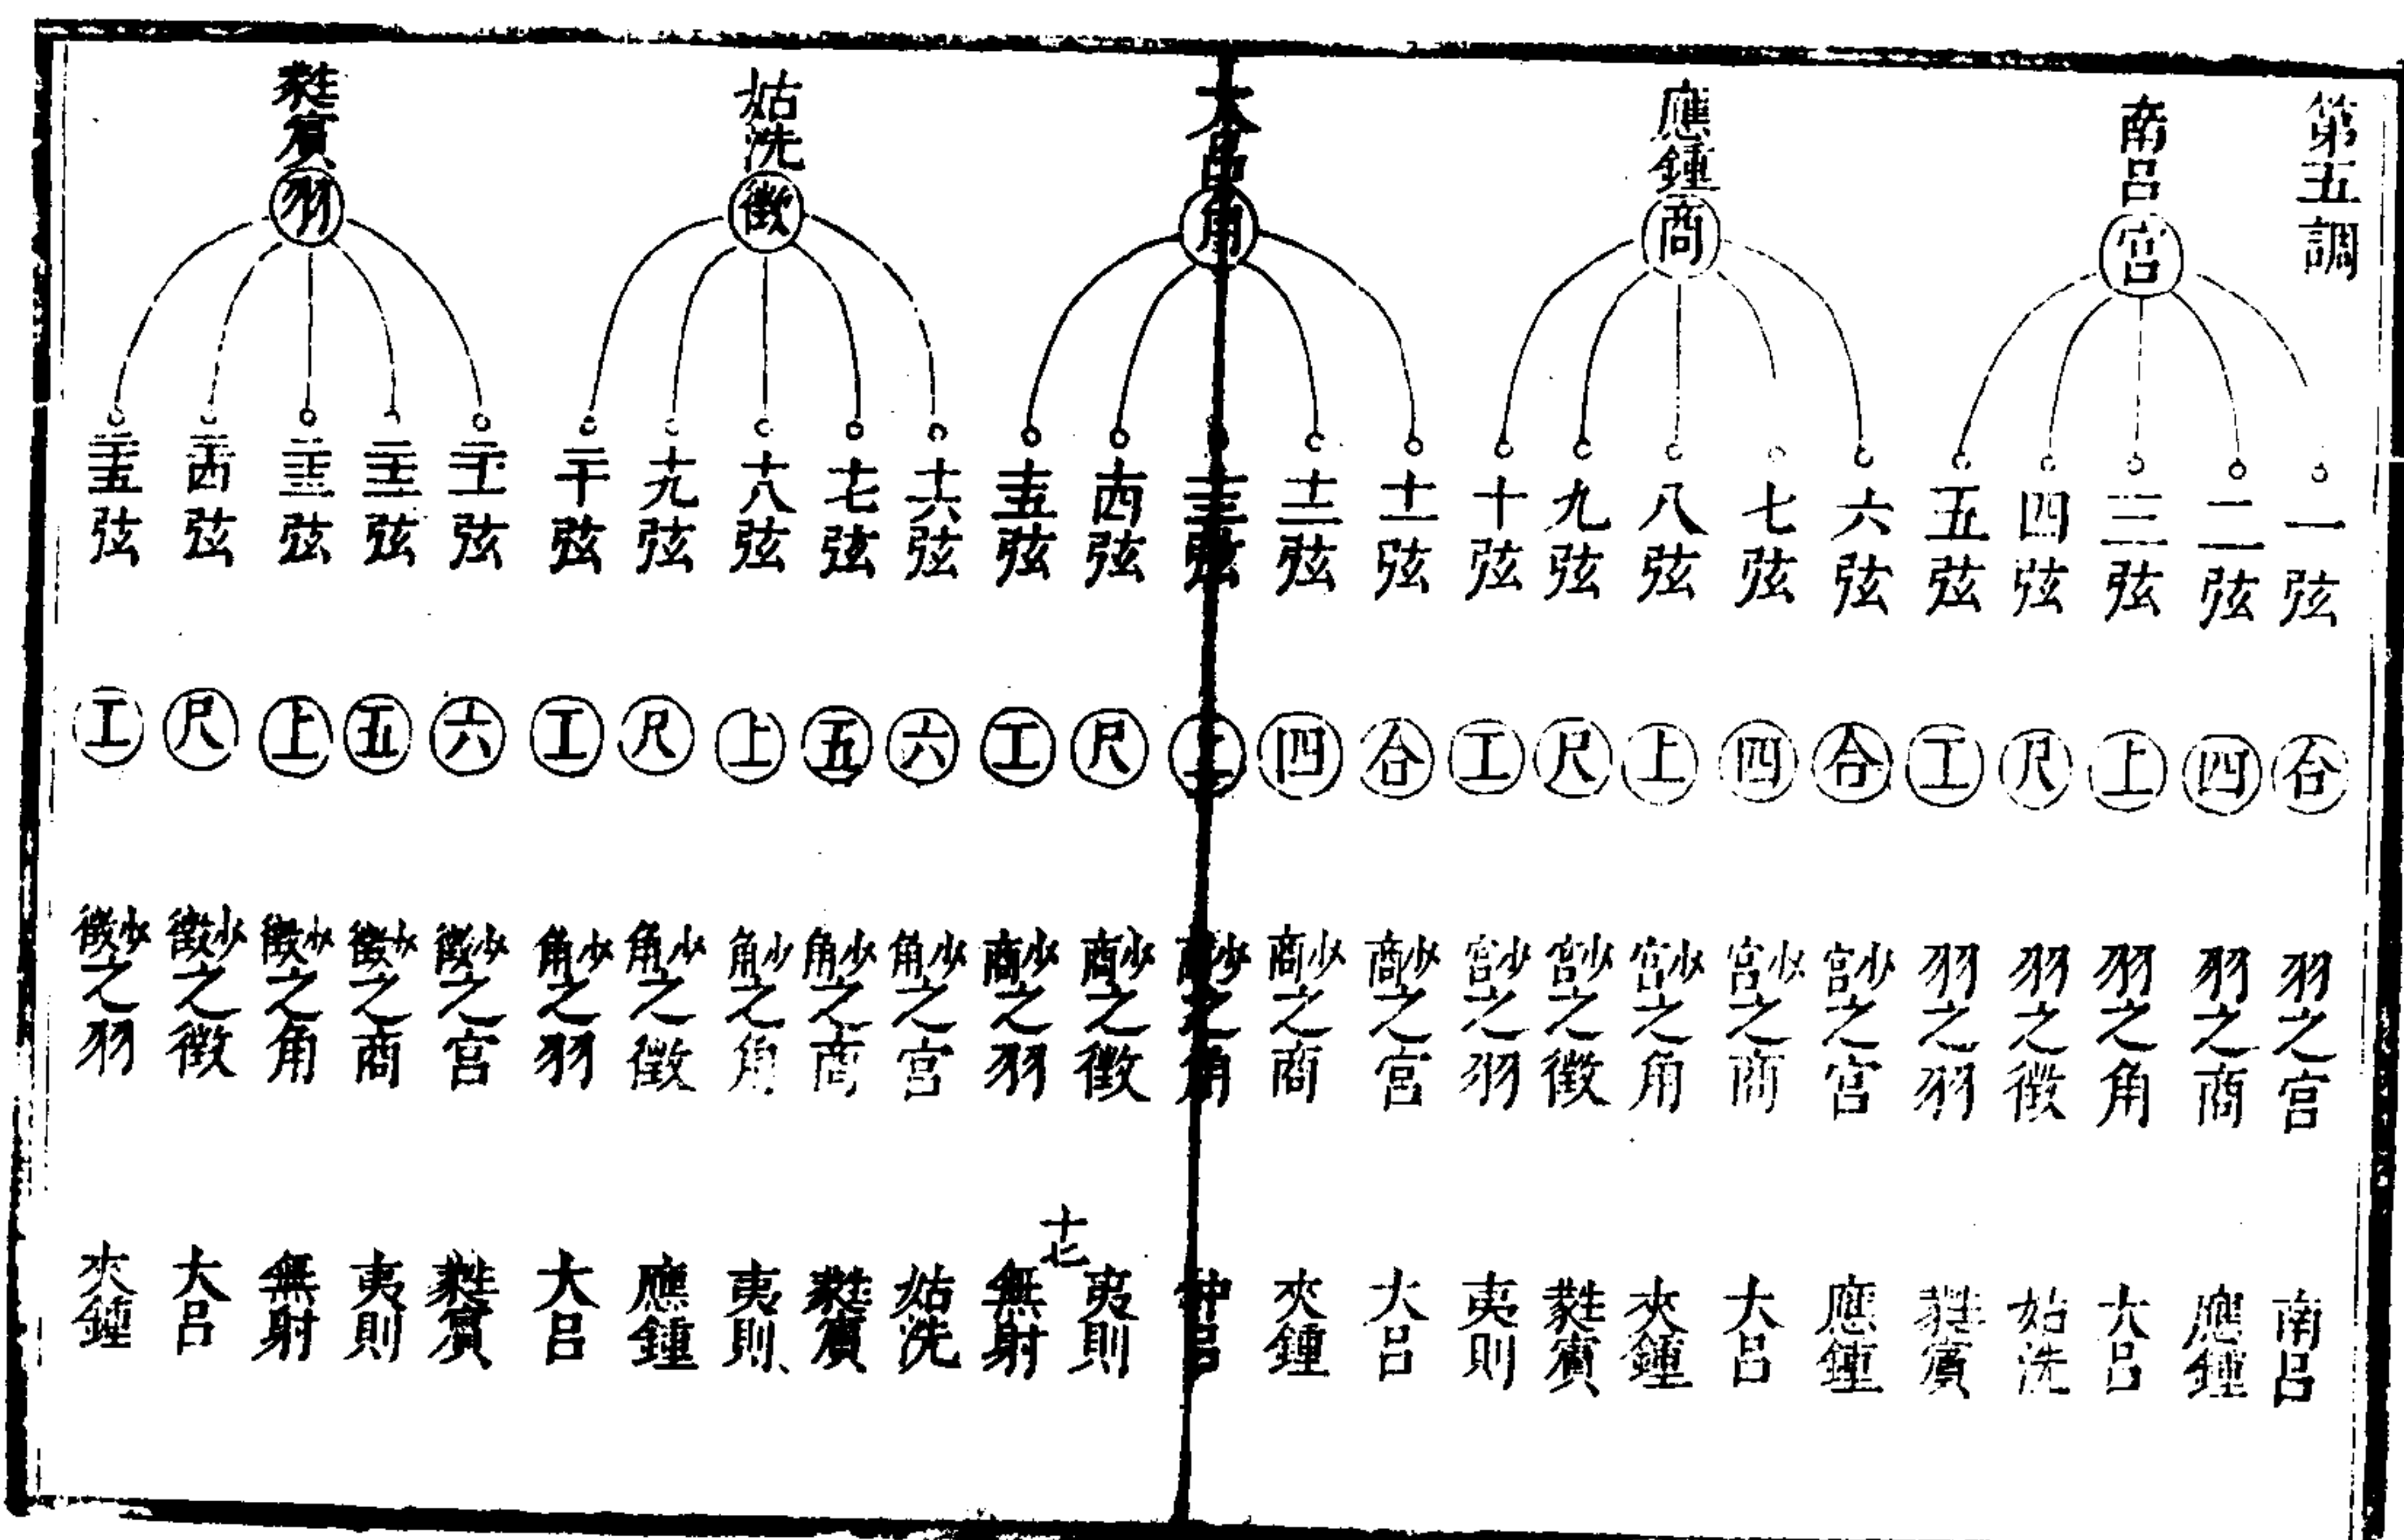 第五調
南呂宮
應鍾商
大呂角
姑洗徵
蕤賓羽
一弦 合 羽之宮 南呂
二弦 四 羽之商 應鍾
三弦 上 羽之角 大呂
四弦 尺 羽之徵 姑洗
五弦 工 羽之羽 蕤賓
六弦 合 少宮之宮 應鍾
七弦 四 少宮之商 大呂
八弦 上 少宮之角 夾鍾
九弦 尺 少宮之徵 蕤賓
十弦 工 少宮之羽 夷則
十一弦 合 少商之宮 大呂
十二弦 四 少商之商 夾鍾
十三弦 上 少商之角 仲呂
十四弦 尺 少商之徵 夷則
十七
十五弦 工 少商之羽 無射
十六弦 六 少角之宮 姑洗
十七弦 五 少角之商 蕤賓
十八弦 上 少角之角 夷則
十九弦 尺 少角之徵 應鍾
二十弦 工 少角之羽 大呂
二十一弦 六 少徵之宮 蕤賓
二十二弦 五 少徵之商 夷則
二十三弦 上 少徵之角 無射
二十四弦 尺 少徵之徵 大呂
二十五弦 工 少徵之羽 夾鍾